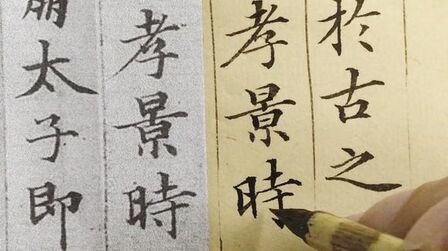 於古之
孝景時
孝景時
太子即